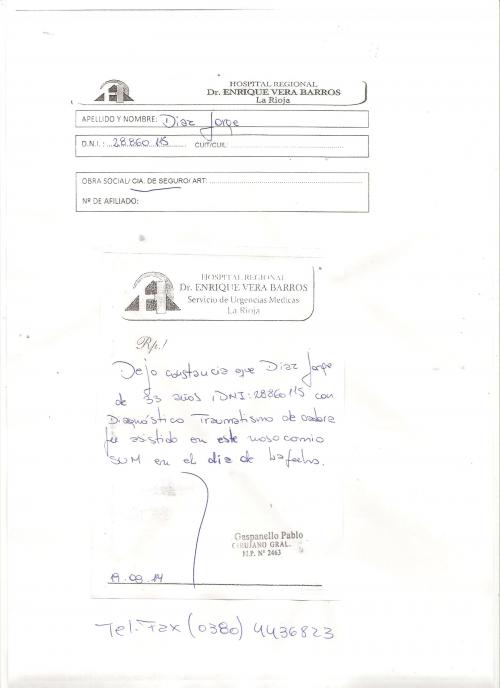 HOSPITAL REGIONAL
Dr. ENRIQUE VERA BARROS
La Rioja
APELLIDO Y NOMBRE: Diaz Jorge
D.N.I.: 28860115 CUIT/CUIL:
OBRA SOCIAL/ CIA. DE SEGURO/ ART:
Nº DE AFILIADO:
HOSPITAL REGIONAL
Dr. ENRIQUE VERA BARROS
Servicio de Urgencias Medicas
La Rioja
Rp./
Dejo constancia que Diaz Jorge
de 33 años, DNI: 28860115 con
Diagnóstico Traumatismo de
fue asistido en este nosocomio
en el dia de la fecha.
Gaspanello Pablo
CIRUJANO GRAL.
M.P. Nº 2463
19.09.14
Tel.Fax (0380) 4436823